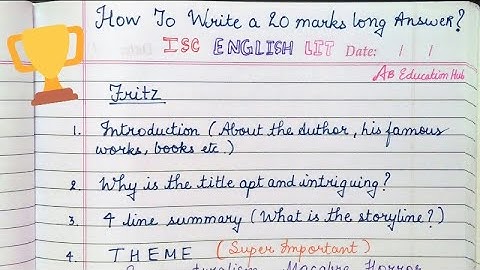 How To Write a 20 marks long Answer?
ISC ENGLISH LIT Date: / /
AB Education Hub
Fritz
1. Introduction (About the Author, his famous
works, books etc.)
2 Why is the title apt and intriguing?
3. 4 line summary (What is the storyline?)
4. THEME (Super Important)
Macabre Horror